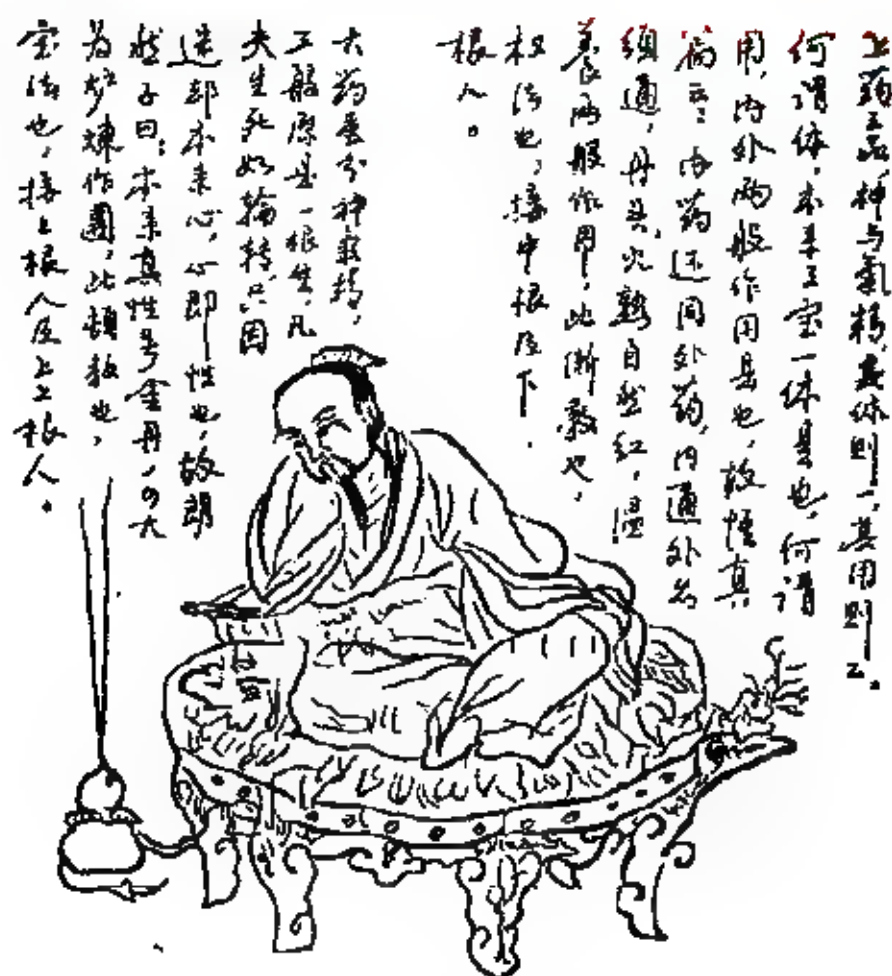 上药三品,神与氣精,其体则一,其用则二。
何谓体,本来三宝一体是也,何谓
用,内外两般作用是也,故悟真
篇云:内药还同外药,内通外亦
须通,丹头火熟自然红,温
养两般作用,此渐教也,
权法也,接中根及下
根人。
大药虽分神氣精,
三般原是一根生,凡
夫生死如轮转,只因
迷却本来心,心即性也,故朗
然子曰:本来真性号金丹,四大
为炉煉作團,此頓教也,
实法也,接上根人及上上根人。